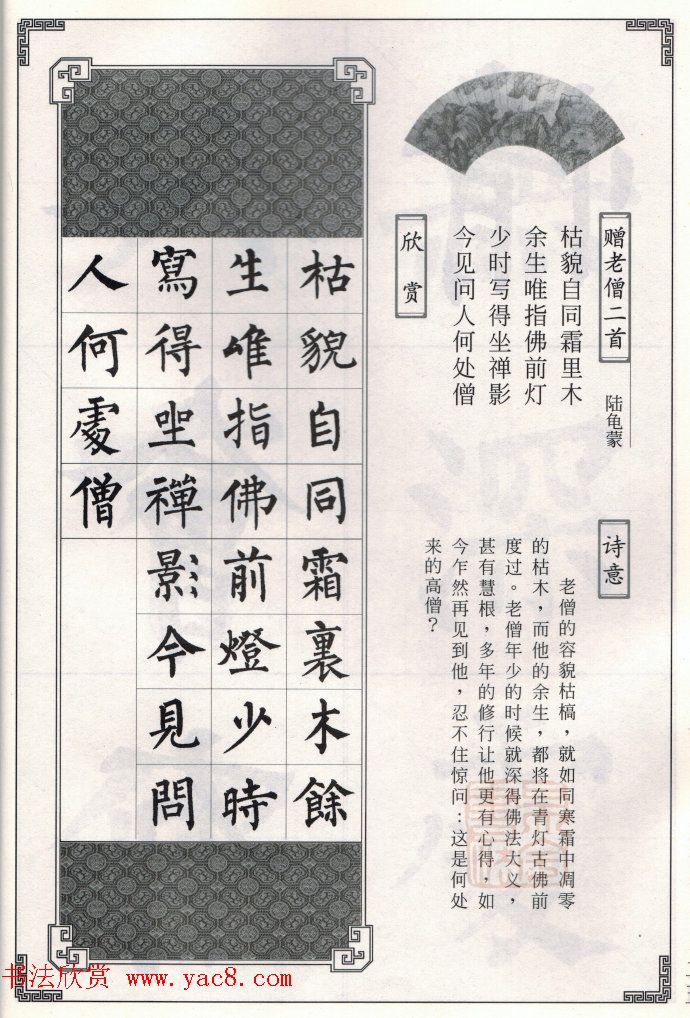 赠老僧二首
陆龟蒙
枯貌自同霜里木
余生唯指佛前灯
少时写得坐禅影
今见问人何处僧
欣赏
诗意
老僧的容貌枯槁，就如同寒霜中凋零
的枯木，而他的余生，都将在青灯古佛前
度过。老僧年少的时候就深得佛法大义，
甚有慧根，多年的修行让他更有心得，如
今乍然再见到他，忍不住惊问：这是何处
来的高僧？
枯貌自同霜裏木餘
生唯指佛前燈少時
寫得坐禪影今見問
人何處僧
书法欣赏 www.yac8.com